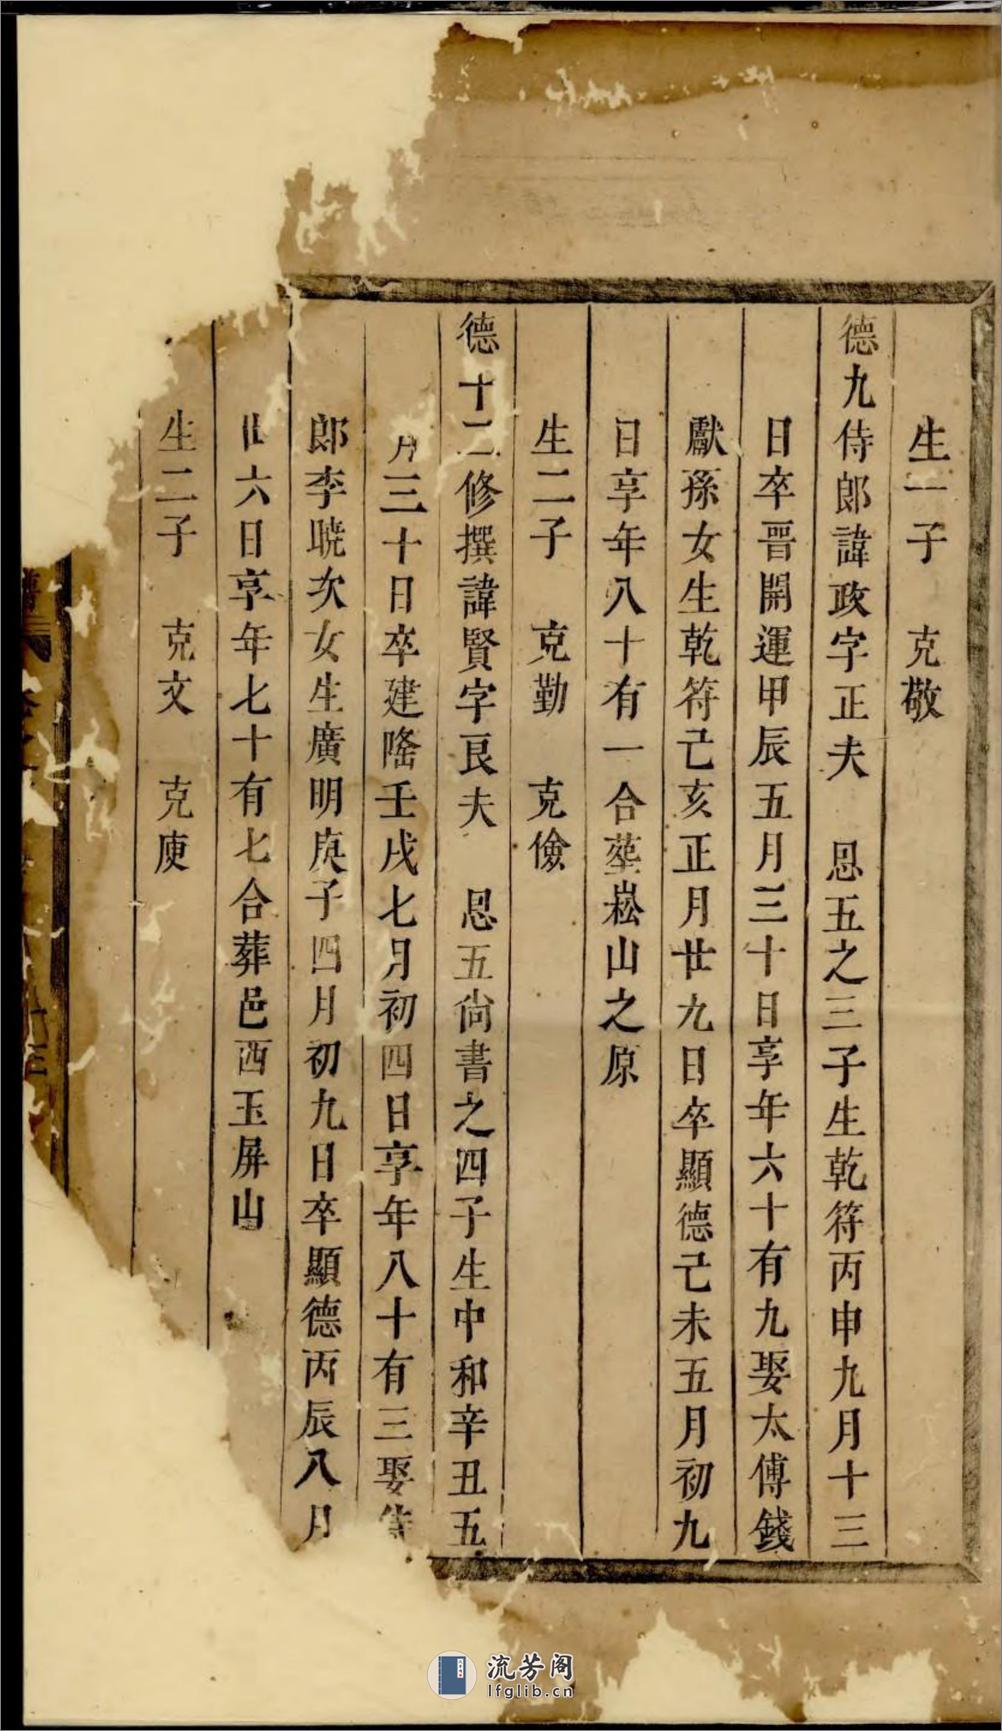 生一子 克敬
德九侍郎諱政字正夫 恩五之三子生乾符丙申九月十三
日卒晋開運甲辰五月三十日享年六十有九娶太傅錢
獻孫女生乾符己亥正月廿九日卒顯德己未五月初九
日享年八十有一合塟崧山之原
生二子 克勤 克儉
德十二修撰諱賢字良夫 恩五尙書之四子生中和辛丑五
月三十日卒建隆壬戌七月初四日享年八十有三娶侍
郎李暁次女生廣明庚子四月初九日卒顯德丙辰八月
六日享年七十有七合葬邑西玉屏山
生二子 克文 克庾
流芳阁
lfglib.cn